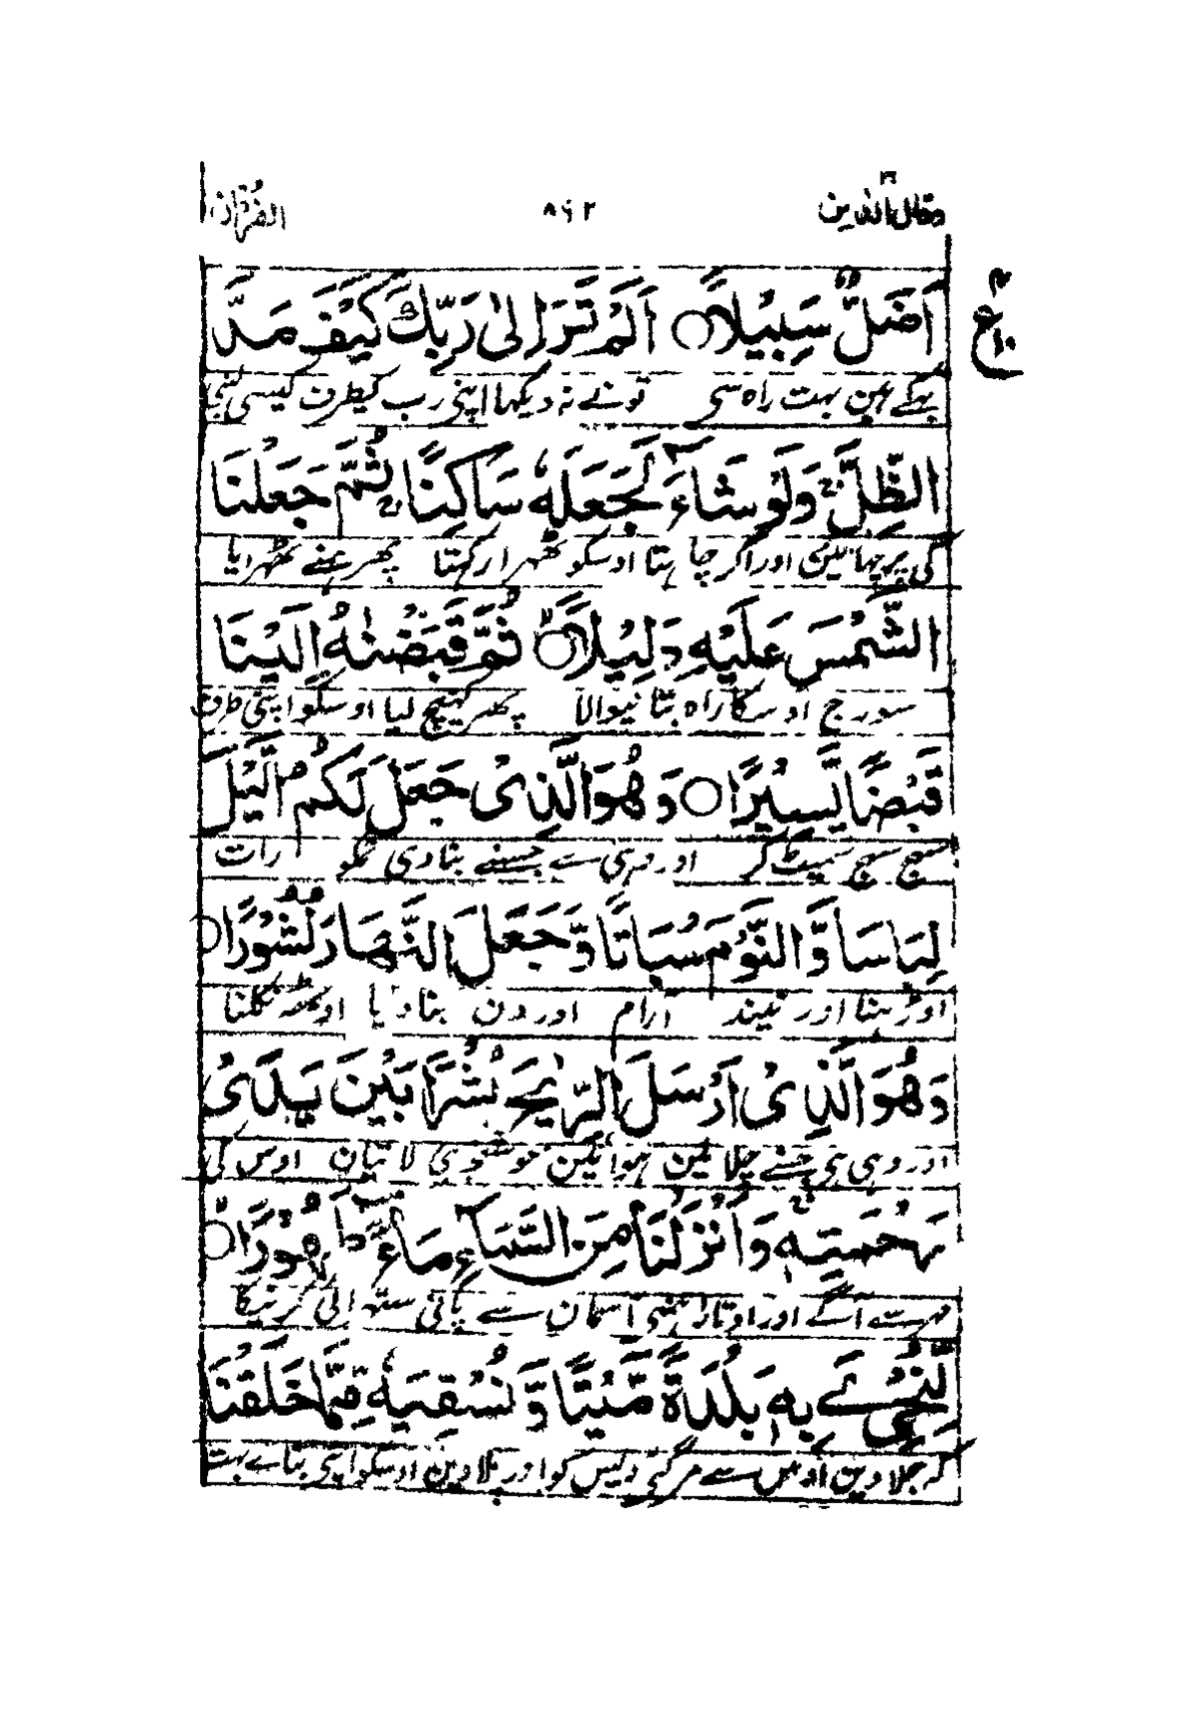 وقال الذین ۸۹۲ الفرقان
اَضَلُّ سَبِيْلًا ○ اَلَمْ تَرَ اِلٰى رَبِّكَ كَيْفَ مَدَّ
بہکے ہین بہت راہ سی تونے نہ دیکہا اپنی رب کیطرف کیسی
الظِّلَّ وَلَوْ شَآءَ لَجَعَلَهٗ سَاكِنًا ثُمَّ جَعَلْنَا
کی پرچہائین اور اگر چاہتا اوسکو ٹھہرا رکہتا پھر ہمنے ٹھہرایا
الشَّمْسَ عَلَيْهِ دَلِيْلًا ○ ثُمَّ قَبَضْنٰهُ اِلَيْنَا
سورج اوسکا راہ بتانیوالا پھر کہینچ لیا اوسکو اپنی طرف
قَبْضًا يَّسِيْرًا ○ وَهُوَ الَّذِىْ جَعَلَ لَكُمُ الَّيْلَ
سہج سہج سمیٹ کر اور وہی ہے جسنے بنا دی تمکو رات
لِبَاسًا وَّالنَّوْمَ سُبَاتًا وَّجَعَلَ النَّهَارَ نُشُوْرًا ○
اوڑہنا اور نیند آرام اور دن بنا دیا اوٹھہ نکلنا
وَهُوَ الَّذِىْ اَرْسَلَ الرِّيٰحَ بُشْرًۢا بَيْنَ يَدَىْ
اور وہی ہی جسنے چلائین ہوائین خوشخبری لاتیان اوس کی
رَحْمَتِهٖ وَاَنْزَلْنَا مِنَ السَّمَآءِ مَآءً طَهُوْرًا ○
مہر سے آگے اور اوتارا ہمنی آسمان سے پانی ستھرائی کرنیکا
لِّنُحْیِۦَ بِهٖ بَلْدَةً مَّيْتًا وَّنُسْقِيَهٗ مِمَّا خَلَقْنَا
کہ جلاوین اوس سے مر گئی دیس کو اور پلاوین اوسکو اپنی بنائے بہت